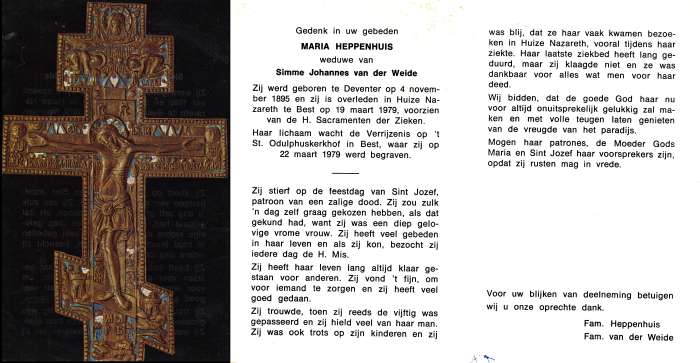 Gedenk in uw gebeden
MARIA HEPPENHUIS
weduwe van
Simme Johannes van der Weide
Zij werd geboren te Deventer op 4 novem-
ber 1895 en zij is overleden in Huize Na-
zareth te Best op 19 maart 1979, voorzien
van de H. Sacramenten der Zieken.
Haar lichaam wacht de Verrijzenis op 't
St. Odulphuskerkhof in Best, waar zij op
22 maart 1979 werd begraven.
Zij stierf op de feestdag van Sint Jozef,
patroon van een zalige dood. Zij zou zulk
'n dag zelf graag gekozen hebben, als dat
gekund had, want zij was een diep gelo-
vige vrome vrouw. Zij heeft veel gebeden
in haar leven en als zij kon, bezocht zij
iedere dag de H. Mis.
Zij heeft haar leven lang altijd klaar ge-
staan voor anderen. Zij vond 't fijn, om
voor iemand te zorgen en zij heeft veel
goed gedaan.
Zij trouwde, toen zij reeds de vijftig was
gepasseerd en zij hield veel van haar man.
Zij was ook trots op zijn kinderen en zij
was blij, dat ze haar vaak kwamen bezoe-
ken in Huize Nazareth, vooral tijdens haar
ziekte. Haar laatste ziekbed heeft lang ge-
duurd, maar zij klaagde niet en ze was
dankbaar voor alles wat men voor haar
deed.
Wij bidden, dat de goede God haar nu
voor altijd onuitsprekelijk gelukkig zal ma-
ken en met volle teugen laten genieten
van de vreugde van het paradijs.
Mogen haar patrones, de Moeder Gods
Maria en Sint Jozef haar voorsprekers zijn,
opdat zij rusten mag in vrede.
Voor uw blijken van deelneming betuigen
wij u onze oprechte dank.
Fam. Heppenhuis
Fam. van der Weide